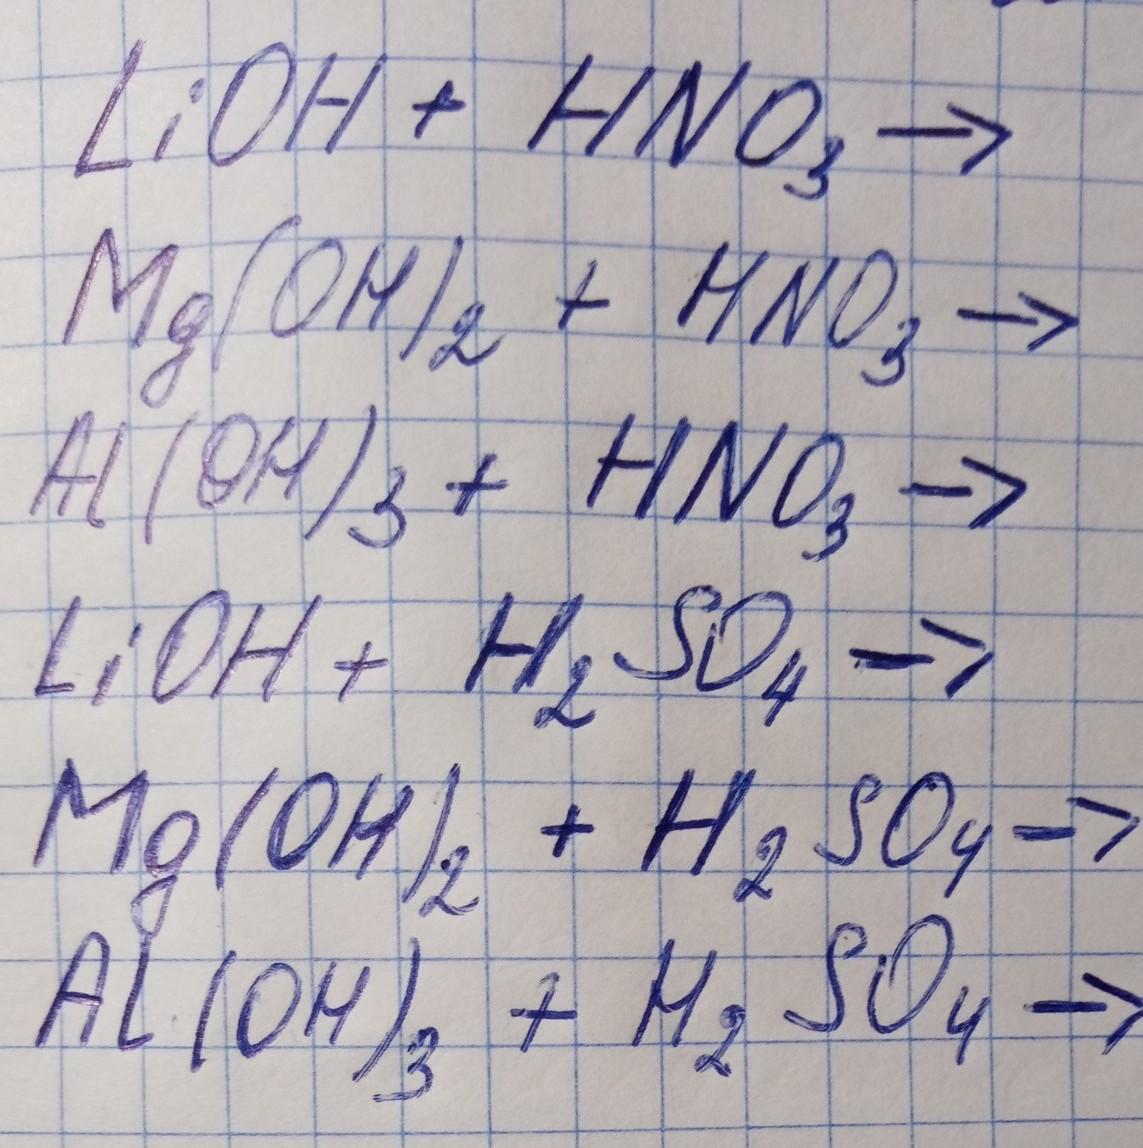 LiOH + HNO₃ →
Mg(OH)₂ + HNO₃ →
Al(OH)₃ + HNO₃ →
LiOH + H₂SO₄ →
Mg(OH)₂ + H₂SO₄ →
Al(OH)₃ + H₂SO₄ →